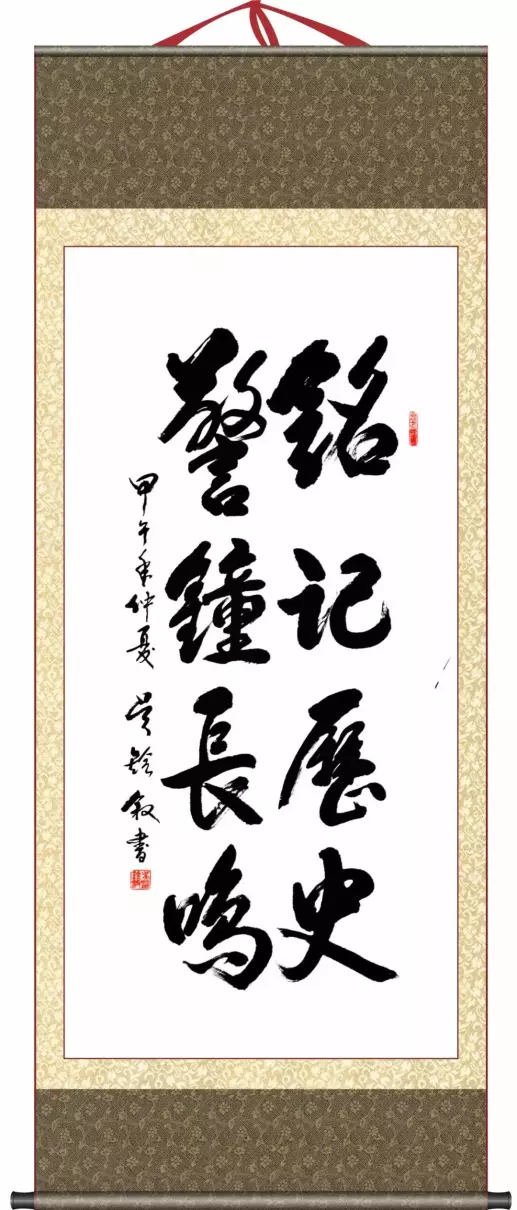 銘记歷史
警鐘長鳴
甲午年仲夏 吴 敬书